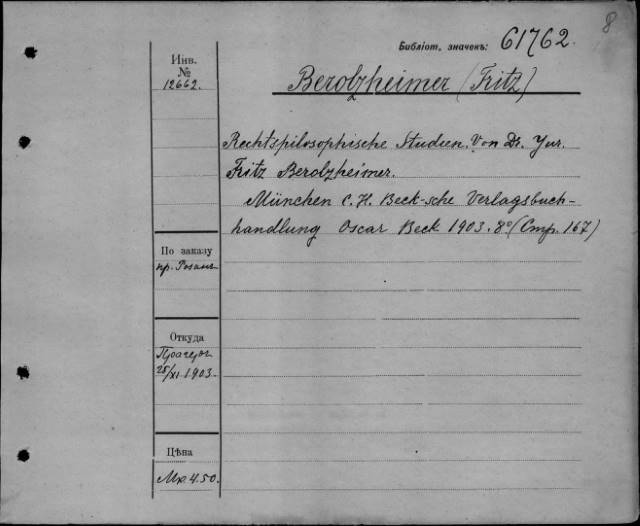 8
Библіот. значекъ: 61762.
Инв.
№
12662.
Berolzheimer (Fritz)
Rechtspilosophische Studien. Von Dr. Jur.
Fritz Berolzheimer.
München C. H. Beck-sche Verlagsbuch-
handlung Oscar Beck 1903. 8º (Стр. 167)
По заказу
пр.
Откуда
25/XI 1903.
Цѣна
Мк. 4.50.